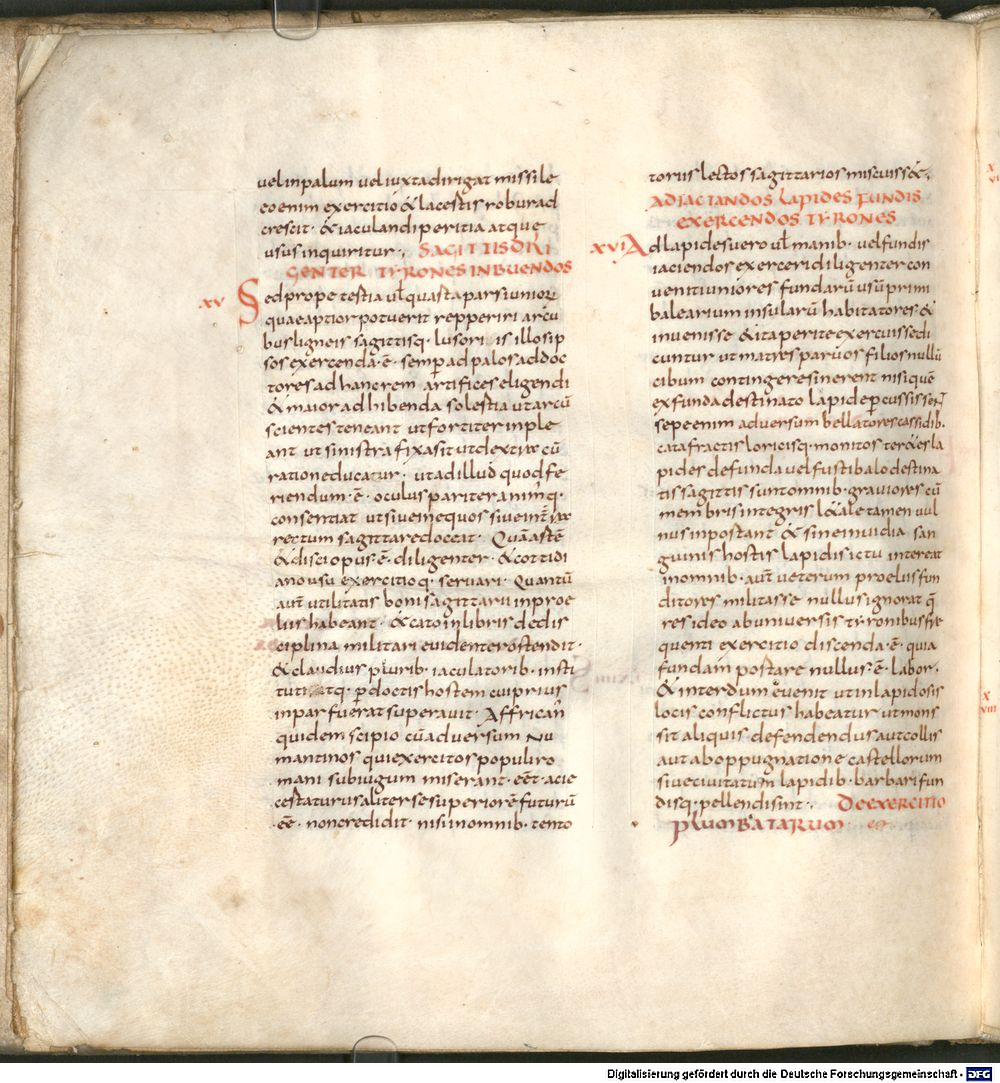 uel inpalum uel iuxta dirigat missile
eo enim exercitio & lacestis robur ad
crescit · & iaculandi peritia atque
usus inquiritur · SAGITTIS DILI
GENTER TYRONES INBUENDOS
XV Sed prope testia ul quasta pars iuniorum
quae aptior potuerit repperiri arcu
bus ligneis sagittisq · lusoriis illos ip
sos exercenda · ē · semper ad palos ad doc
tores ad hanc rem artifices eligendi
& maior adhibenda solestia ut arcū
scientes teneant ut fortiter inple
ant ut sinistra fixa sit ut dextra cū
ratione ducatur · ut ad illud quod fe
riendum · ē · oculus pariter animq ·
consentiat ut siue in equos siue in
rectum sagittare doceat · Quā astē
& disci opus · ē · diligenter · & cottidi
ano usu exercitioq · seruari · Quantū
aut utilitatis boni sagittarii in proe
liis habeant · & cato in libris de dis
ciplina militari euidenter ostendit ·
& claudius plurib · iaculatorib · insti
tutis atq · perdoctis hostem cui prius
inpar fuerat superauit · Affrican
quidem scipio cū aduersum Nu
mantinos qui exercitos populi ro
mani sub iugum miserant · eēt · acie
cestaturus aliter se superiorē futurū
· eē · non credidit · nisi in omnib · cento
toriis lectos sagittarios miscuiss& ·
AD IACTANDOS LAPIDES FUNDIS
EXERCENDOS TYRONES
XVI Ad lapides uero ul manib · uel fundis
iaciendos exerceri diligenter con
uenit iuniores fundarū usū primi
balearium insularū habitatores · &
inuenisse & ita perite exercuisse di
cuntur ut matres paruos filios nullū
cibum contingere sinerent nisi quē
ex funda destinato lapide percussissent
sepe enim aduersum bellatores cassidib ·
catafractis loricisq · monitos teretes la
pides de funda uel fustibalo destina
tis sagittis sunt omnib · grauiores cū
membris integris letale tamen uul
nus inpostant & sine inuidia san
guinis hostis lapidis ictu intereat
in omnib · aut ueterum proeliis fun
ditores militasse nullus ignorat q
res ideo ab uniuersis tyronibus fre
quenti exercitio discenda · ē · quia
fundam postare nullus · ē · labor ·
& interdum euenit ut in lapidosis
locis conflictus habeatur ut mons
sit aliquis defendendus aut collis
aut ab oppugnatione castellorum
siue ciuitatum lapidib · barbari fun
disq · pellendi sint · DE EXERCITIO
PLUMBATARUM
Digitalisierung gefördert durch die Deutsche Forschungsgemeinschaft - DFG